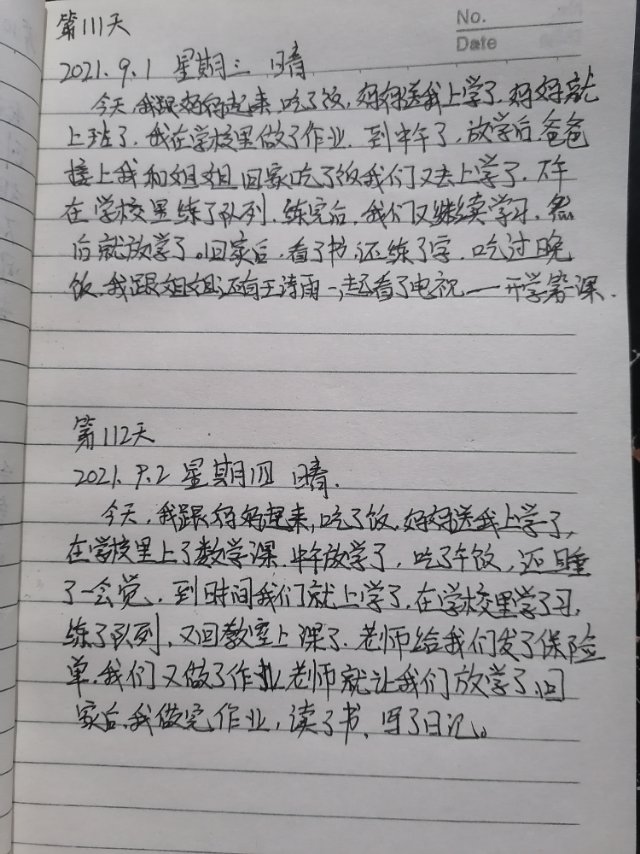 No.
Date
第111天
2021.9.1 星期三 晴
今天,我跟妈妈起来,吃了饭,妈妈送我上学了,妈妈就
上班了,我在学校里做了作业,到中午了,放学后,爸爸
接上我和姐姐回家吃了饭我们又去上学了,下午
在学校里练了队列,练完后,我们又继续学习,然
后就放学了。回家后,看了书,还练了字,吃过晚
饭,我跟姐姐还有王诗雨一起去看了电视——开学第一课.
第112天
2021.9.2 星期四 晴.
今天,我跟妈妈起来,吃了饭,妈妈送我上学了,
在学校里上了数学课,中午放学了,吃了午饭,还睡
了一会觉,到时间我们就上学了,在学校里学了习,
练了队列,又回教室上课了,老师给我们发了保险
单,我们又做了作业,老师就让我们放学了,回
家后,我做完作业,读了书、写了日记。